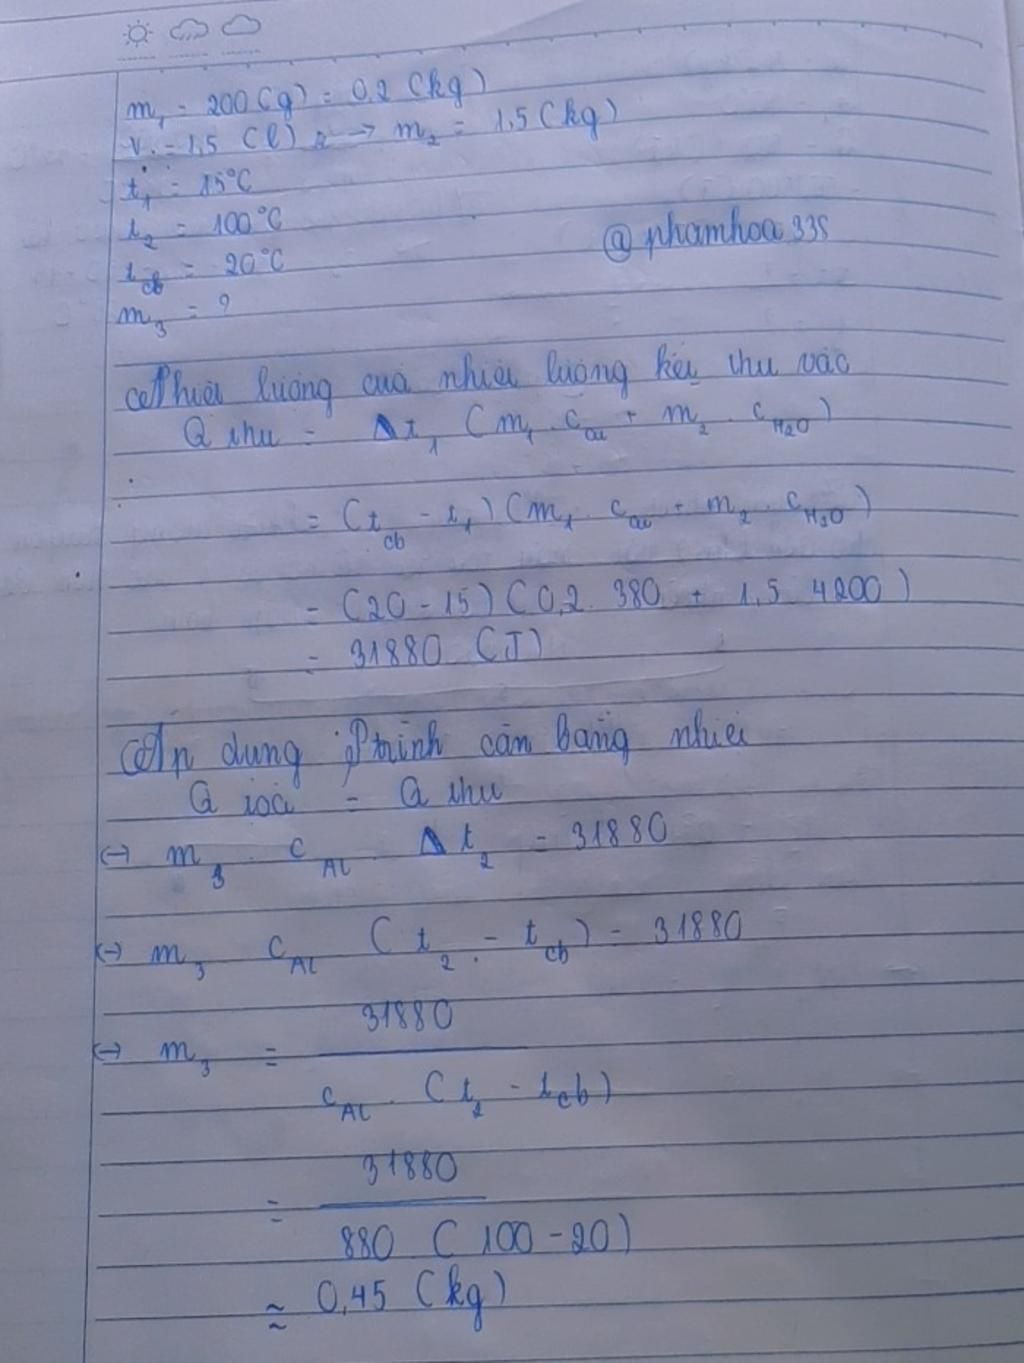 m₁ = 200 (g) = 0,2 (kg)
V = 1,5 (l) → m₂ = 1,5 (kg)
t₁ = 15°C
t₂ = 100°C
t_cb = 20°C
@phamhoa335
m₃ = ?
Nhiệt lượng của nhiệt lượng kế thu vào
Q thu = Δt₁ (m₁ . c_cu + m₂ . c_H₂O)
= (t_cb - t₁) (m₁ . c_cu + m₂ . c_H₂O)
= (20 - 15) (0,2 . 380 + 1,5 . 4200)
= 31880 (J)
Áp dụng ptrình cân bằng nhiệt
Q toả = Q thu
⇔ m₃ . c_Al . Δt₂ = 31880
⇔ m₃ . c_Al . (t₂ - t_cb) = 31880
31880
⇔ m₃ =
c_Al . (t₂ - t_cb)
31880
=
880 (100 - 20)
≈ 0,45 (kg)